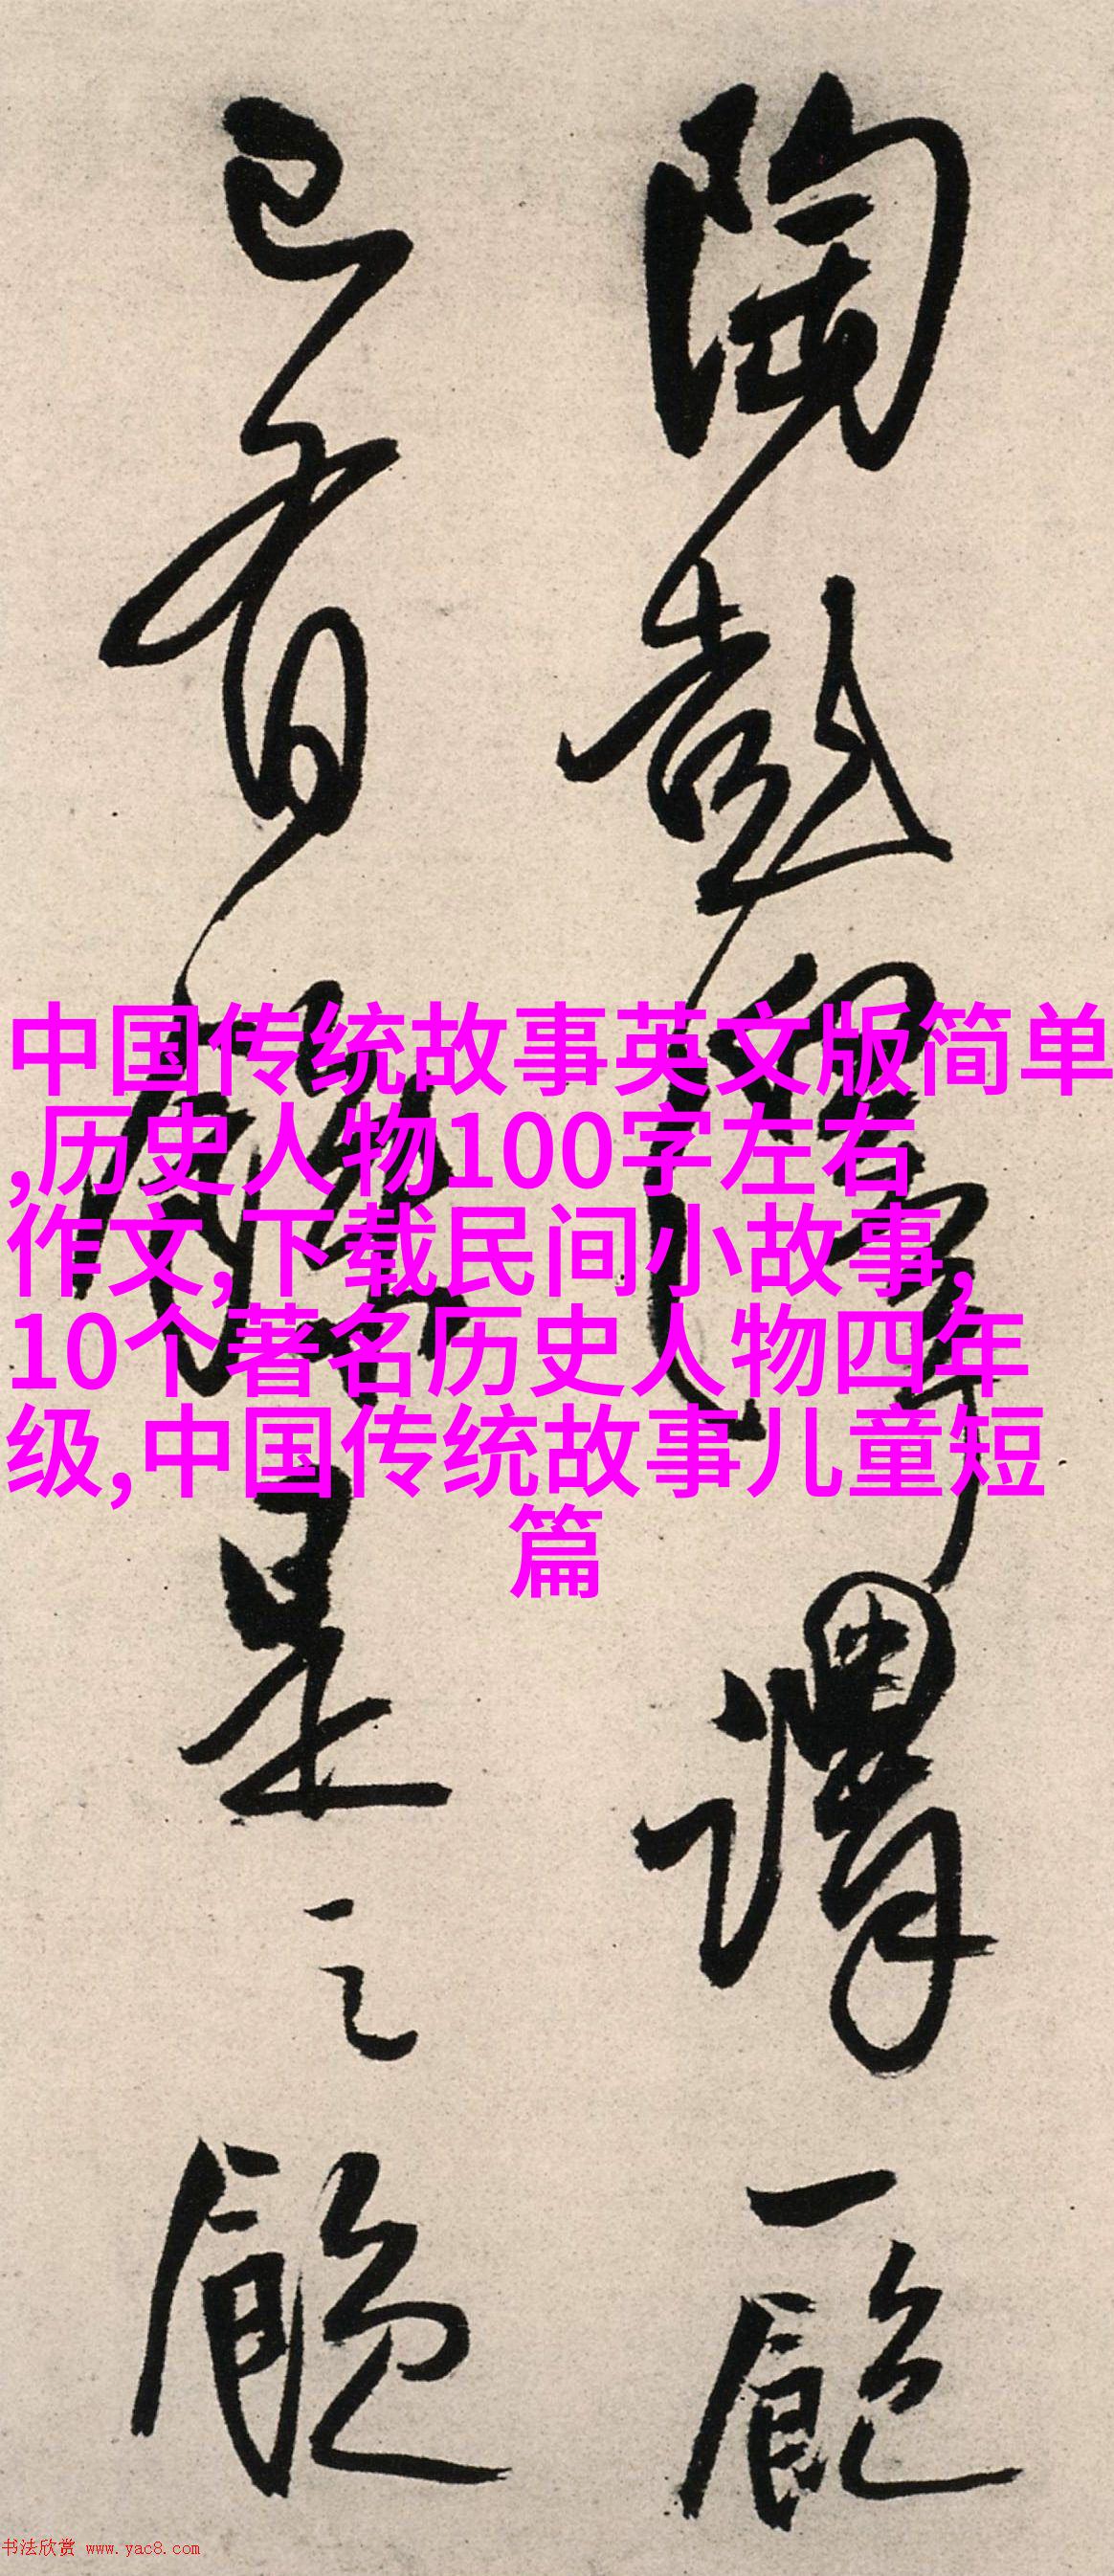 陶彭泽谓一饱
已有余是之饱
中国传统故事英文版简单
,历史人物100字左右
作文,下载民间小故事,
10个著名历史人物四年
级,中国传统故事儿童短
篇
书法欣赏 www.yac8.com